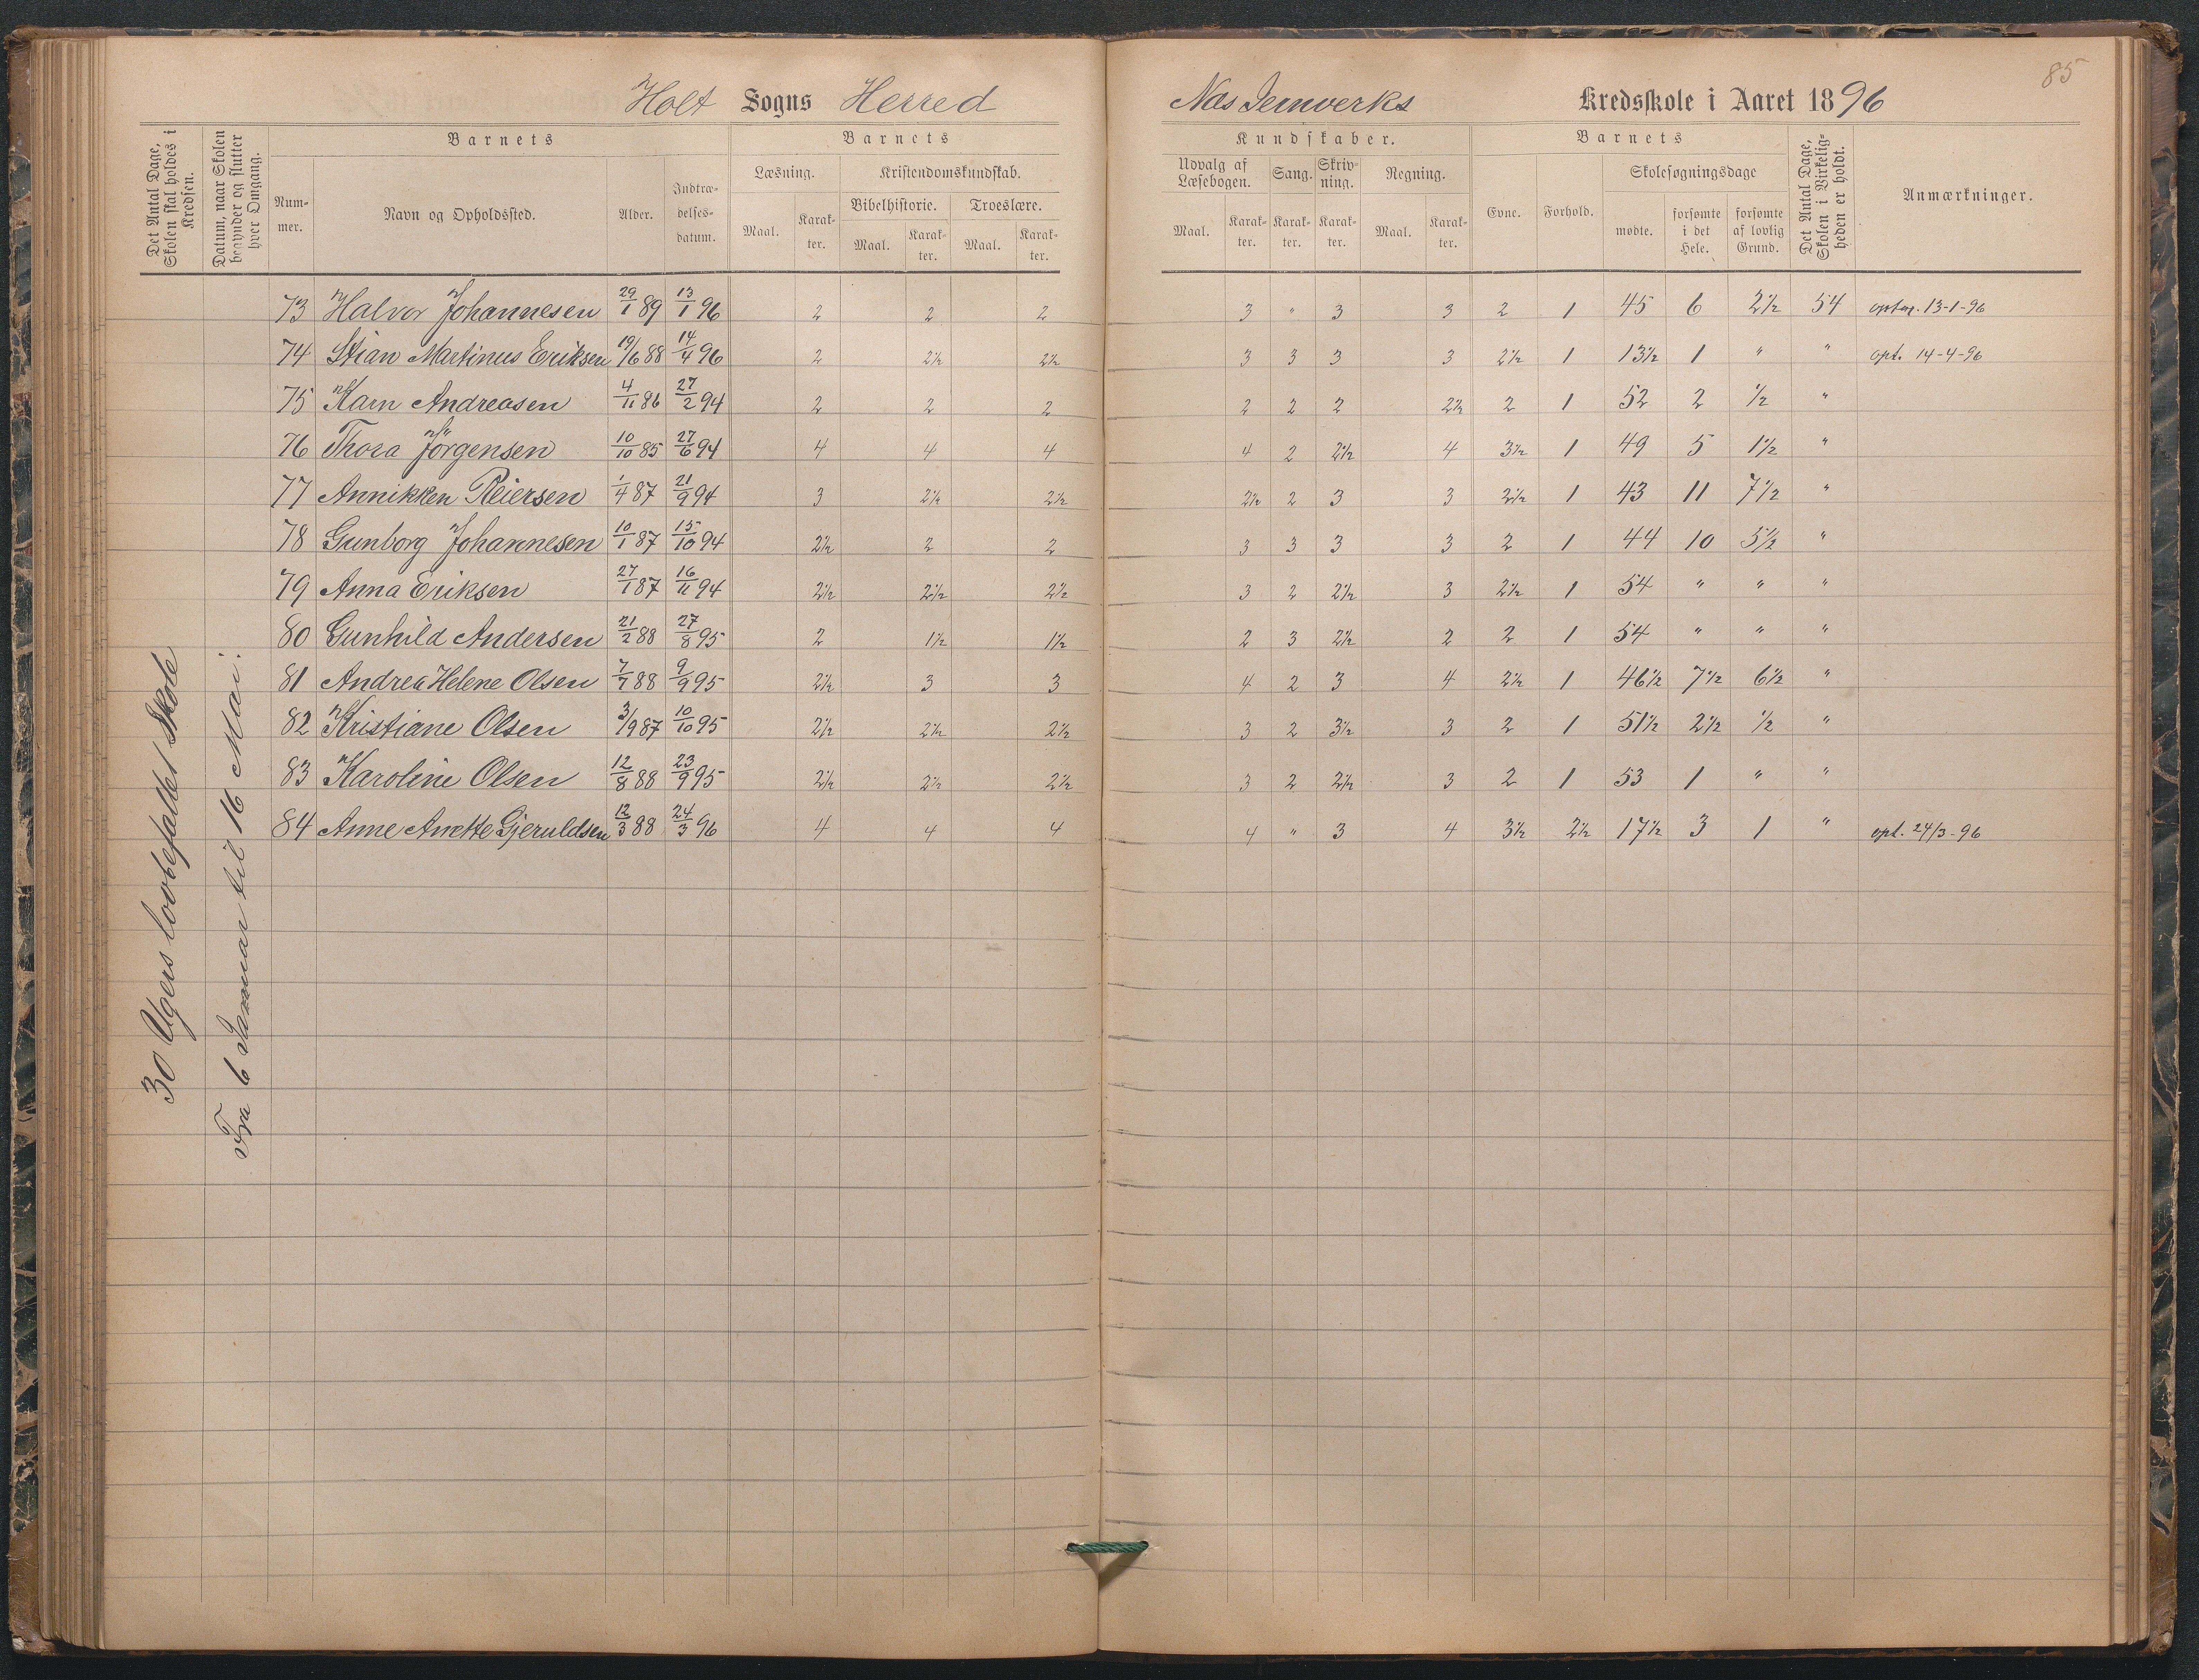 85
Holt Sogns Herred
Næs Jernverks Kredsskole i Aaret 1896
Det Antal Dage, Skolen skal holdes i Kredsen.
Datum, naar Skolen begynder og slutter hver Omgang.
Barnets
Nummer.
Navn og Opholdssted.
Alder.
Indtrædelsesdatum.
Barnets
Læsning.
Maal.
Karakter.
Kristendomskundskab.
Bibelhistorie.
Maal.
Karakter.
Troeslære.
Maal.
Karakter.
Kundskaber.
Udvalg af Læsebogen.
Maal.
Karakter.
Sang.
Karakter.
Skrivning.
Karakter.
Regning.
Maal.
Karakter.
Barnets
Evne.
Forhold.
Skolesøgningsdage
mødte.
forsømte i det Hele.
forsømte af lovlig Grund.
Det Antal Dage, Skolen i Virkeligheden er holdt.
Anmærkninger.
30 Ugers lovbefallet Skole
Fra 6 Januar til 16 Mai.
73 Halvor Johannesen 29/1 89 13/1 96 2 2 2 3 " 3 3 2 1 45 6 2 1/2 54 13-1-96
74 Stian Martinus Eriksen 19/6 88 14/4 96 2 2 1/2 2 1/2 3 3 3 3 2 1/2 1 13 1/2 1 " " opt. 14-4-96
75 Karn Andreasen 4/11 86 27/2 94 2 2 2 2 2 2 2 1/2 2 1 52 2 1/2 "
76 Thora Jörgensen 10/10 85 27/6 94 4 4 4 4 2 2 1/2 4 3 1/2 1 49 5 1 1/2 "
77 Annikken Reiersen 1/4 87 21/9 94 3 2 1/2 2 1/2 2 1/2 2 3 3 2 1/2 1 43 11 7 1/2 "
78 Gunborg Johannesen 10/1 87 15/10 94 2 1/2 2 2 3 3 3 3 2 1 44 10 5 1/2 "
79 Anna Eriksen 27/1 87 16/11 94 2 1/2 2 1/2 2 1/2 3 2 2 1/2 3 2 1/2 1 54 " " "
80 Gunhild Andersen 21/2 88 27/8 95 2 1 1/2 1 1/2 2 3 2 1/2 2 2 1 54 " " "
81 Andrea Helene Olsen 7/7 88 9/9 95 2 1/2 3 3 4 2 3 4 2 1/2 1 46 1/2 7 1/2 6 1/2 "
82 Kristiane Olsen 3/9 87 10/10 95 2 1/2 2 1/2 2 1/2 3 2 3 1/2 3 2 1 51 1/2 2 1/2 1/2 "
83 Karoline Olsen 12/8 88 23/9 95 2 1/2 2 1/2 2 1/2 3 2 2 1/2 3 2 1 53 1 " "
84 Anne Anette Gjeruldsen 12/3 88 24/3 96 4 4 4 4 " 3 4 3 1/2 2 1/2 17 1/2 3 1 " opt. 24/3-96